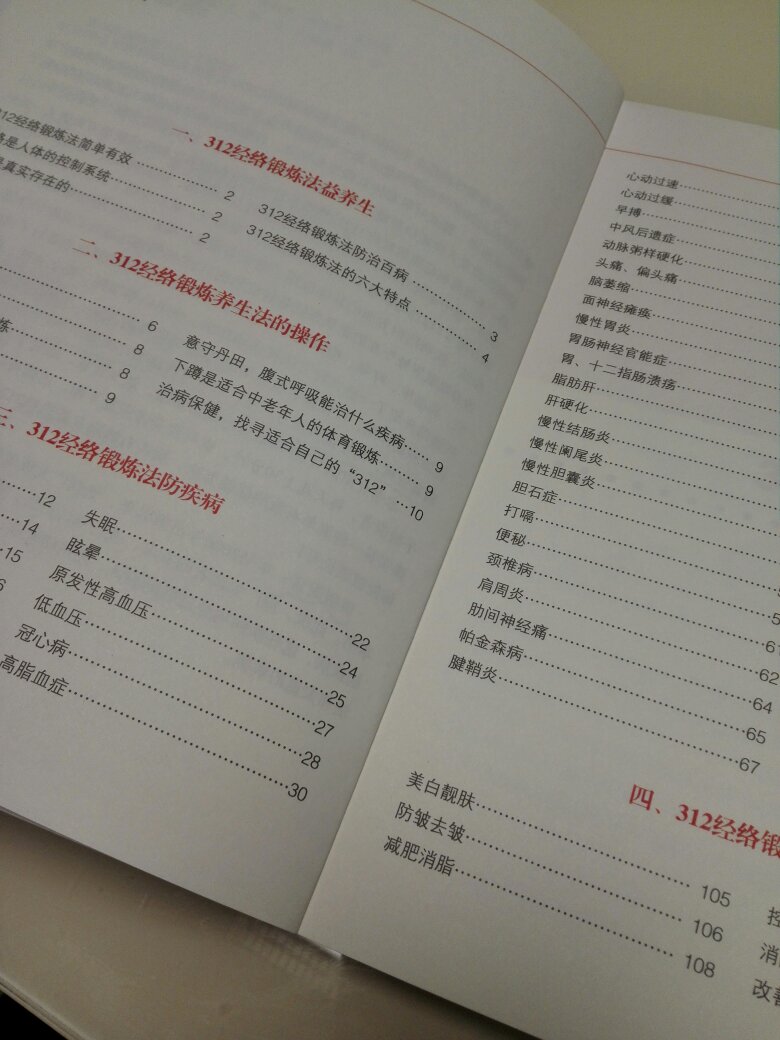 一、312经络锻炼法益养生
312经络锻炼法简单有效 2
是人体的控制系统 2
真实存在的 2
312经络锻炼法防治百病 3
312经络锻炼法的六大特点 4
二、312经络锻炼养生法的操作
6
炼 8
8
9
意守丹田，腹式呼吸能治什么疾病 9
下蹲是适合中老年人的体育锻炼 9
治病保健，找寻适合自己的“312” 10
三、312经络锻炼法防疾病
12
14
15
6
失眠 22
眩晕 24
原发性高血压 25
低血压 27
冠心病 28
高脂血症 30
心动过速
心动过缓
早搏
中风后遗症
动脉粥样硬化
头痛、偏头痛
脑萎缩
面神经瘫痪
慢性胃炎
胃肠神经官能症
胃、十二指肠溃疡
脂肪肝
肝硬化
慢性结肠炎
慢性阑尾炎
慢性胆囊炎
胆石症
打嗝
便秘
颈椎病
肩周炎 61
肋间神经痛 62
帕金森病 64
腱鞘炎 65
67
四、312经络锻
美白靓肤 105
防皱去皱 106
减肥消脂 108
消
改善